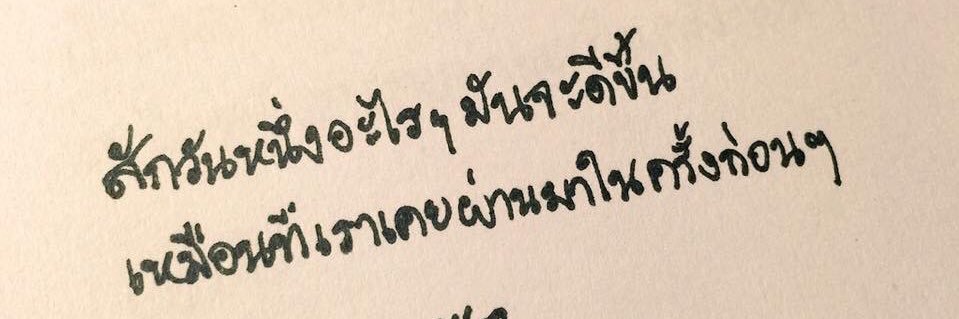 สักวันหนึ่งอะไรๆ มันจะดีขึ้น
เหมือนที่เราเคยผ่านมาในครั้งก่อนๆ